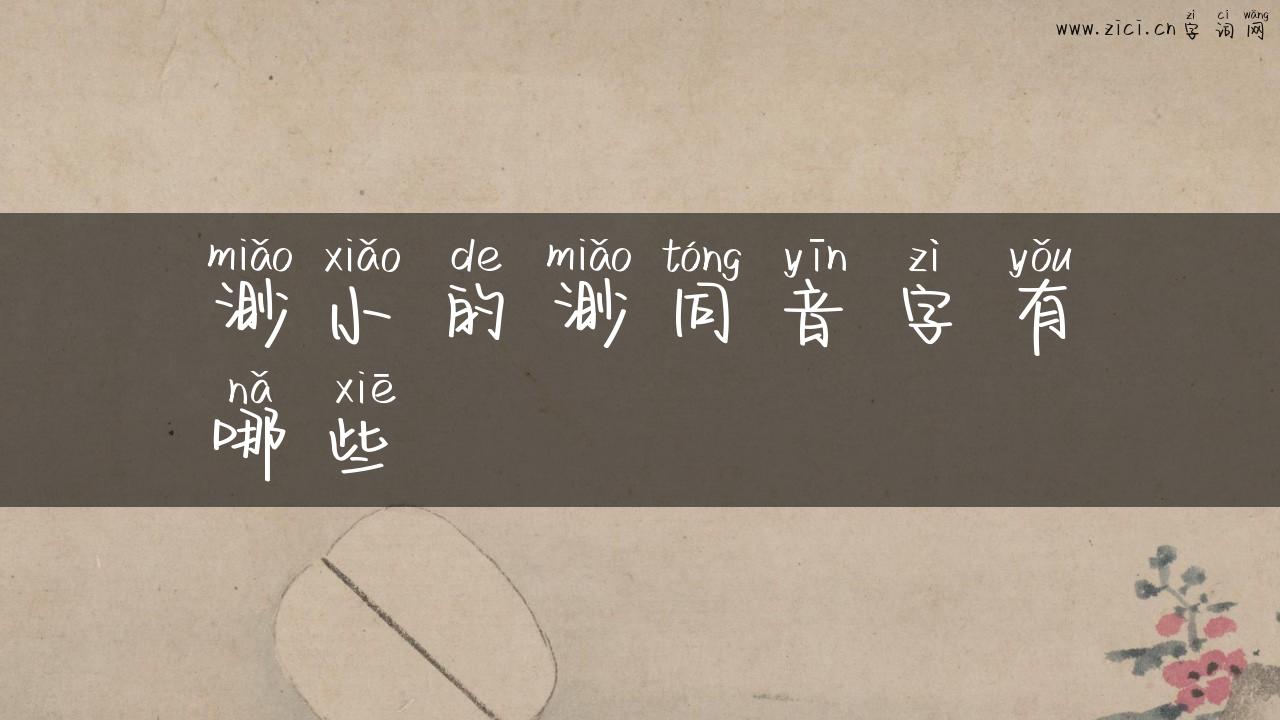 zì cí wǎng
www.zici.cn字词网
miǎo xiǎo de miǎo tóng yīn zì yǒu
渺小的渺同音字有
nǎ xiē
哪些